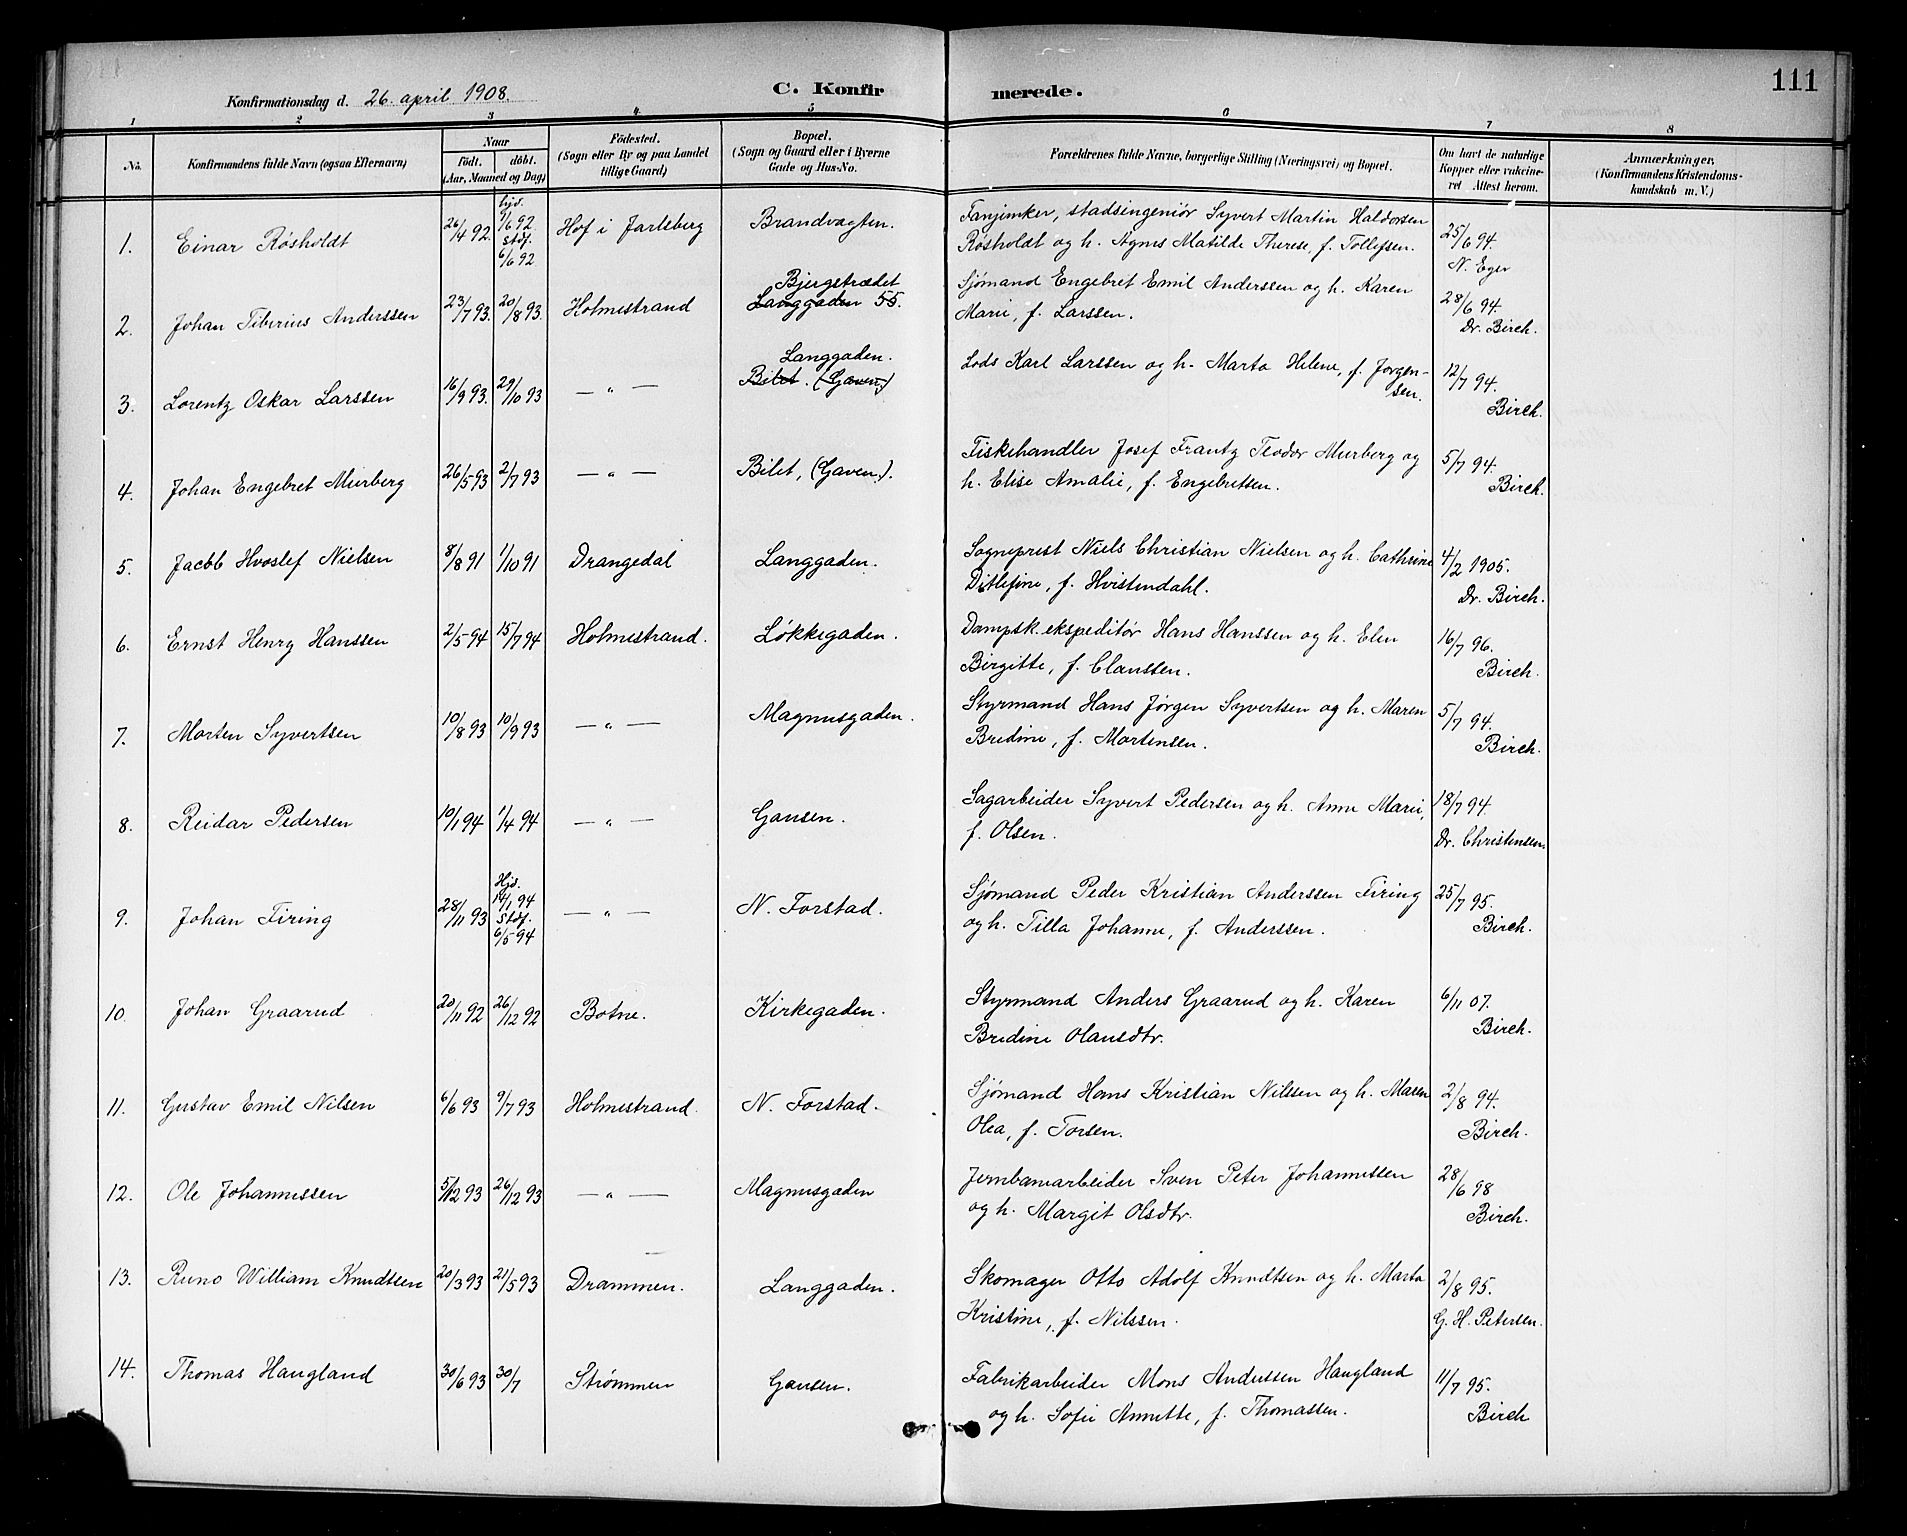 111
Konfirmationsdag d. 26. april 1908.
C. Konfirmerede.
1 2 3 4 5 6 7 8
No.
Konfirmandens fulde Navn (ogsaa Efternavn)
Naar
födt. döbt.
(Aar, Maaned og Dag)
Födested.
(Sogn eller By og paa Landet
tillige Gaard)
Bopæl.
(Sogn og Gaard eller i Byerne
Gade og Hus-No.
Forældrenes fulde Navne, borgerlige Stilling (Næringsvei) og Bopæl.
Om havt de naturlige
Kopper eller vakcine-
ret Attest herom.
Anmærkninger.
(Konfirmandens Kristendoms-
kundskab m. V.)
1. Einar Røsholdt 26/4 92. hjd. 9/6 92 stdf. 6/6 92 Hof i Jarlsberg Brandvagten. Fanjunker, stadsingeniør Syvert Martin Haldorsen
Røsholdt og h. Agnes Matilde Therese, f. Tollefsen. 25/6 94. N. Eger
2. Johan Tiberius Anderssen 23/7 93. 20/8 93. Holmestrand Bjergstrædet Langgaden 55. Sjømand Engebret Emil Anderssen og h. Karen
Marie, f. Larssen. 28/6 94. Dr. Birch.
3. Lorentz Oskar Larssen 16/9 93. 29/10 93 — " — Langgaden. Bilet. (Gaven) Lods Karl Larssen og h. Marta Helene, f. Jørgen-
sen. 12/7 94. Birch.
4. Johan Engebret Murberg 26/5 93 2/7 93 — " — Bilet, (Gaven.). Fiskehandler Josef Frantz Teodor Murberg og
h. Elise Amalie, f. Engebretsen. 5/7 94. Birch.
5. Jacob Hvoslef Nielsen 8/8 91 1/10 91 Drangedal Langgaden. Sogneprest Niels Christian Nielsen og h. Cathrine
Ditlefine, f. Hvistendahl. 4/2 1905. Dr. Birch.
6. Ernst Henry Hanssen 2/5 94 15/7 94 Holmestrand. Løkkegaden. Dampsk. ekspeditør Hans Hanssen og h. Elen
Birgitte, f. Clanssen. 16/7 96. Birch.
7. Morten Syvertsen 10/8 93 10/9 93 — " — Magnusgaden. Styrmand Hans Jørgen Syvertsen og h. Maren
Bredine, f. Mortensen. 5/7 94. Birch.
8. Reidar Pedersen 10/1 94 1/4 94 — " — Gausen. Sagarbeider Syvert Pedersen og h. Anne Marie,
f. Olsen. 18/7 94. Dr. Christensen.
9. Johan Firing 28/11 93 Hjd. 14/1 94 stdf. 6/5 94 — " — N. Forstad. Sjømand Peder Kristian Anderssen Firing
og h. Tilla Johanne, f. Anderssen. 25/7 95. Birch.
10. Johan Graarud 20/11 92 26/12 92 Botne. Kirkegaden. Styrmand Anders Graarud og h. Karen
Bredine Olausdtr. 6/11 07. Birch.
11. Gustav Emil Nilsen 6/6 93 9/7 93 Holmestrand. N. Forstad. Sjømand Hans Kristian Nilssen og h. Maren
Olea, f. Torsen. 2/8 94. Birch.
12. Ole Johannessen 5/12 93 26/12 93 — " — Magnusgaden Jernbanearbeider Sven Peter Johannessen
og h. Margit Olsdtr. 28/6 98 Birch.
13. Runo William Knudtsen 20/3 93 21/5 93 Drammen. Langgaden. Skomager Otto Adolf Knudtsen og h. Marta
Kristine, f. Nilssen. 2/8 95. G. H. Petersen.
14. Thomas Haugland 30/6 93 30/7 Strømmen Gausen. Fabrikarbeider Mons Andersen Haugland
og h. Sofie Annette, f. Thomassen. 11/7 95. Birch